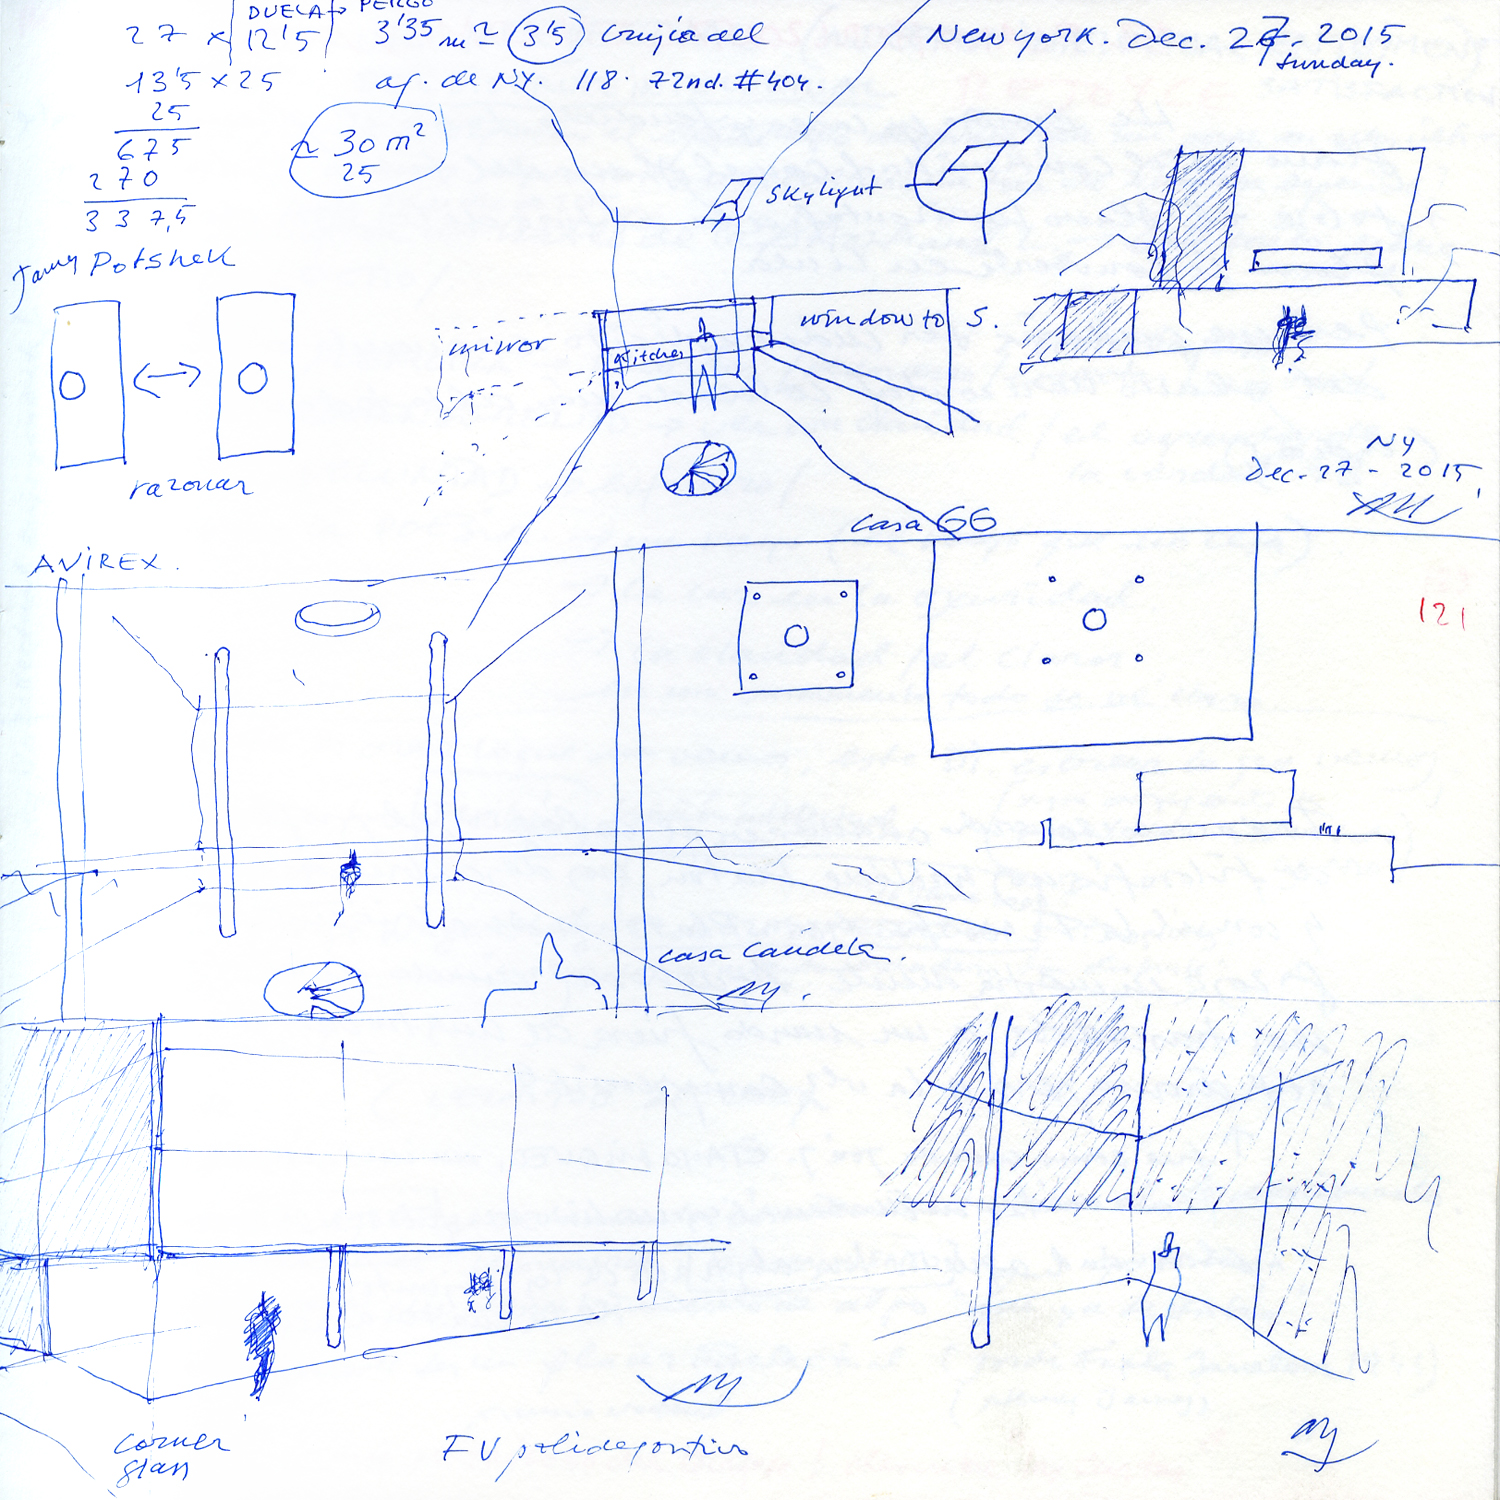 DUELA → PERGO
27 × 12'5 3'35 m² 3'5 crujía del
New York. Dec. 27. 2015
Sunday.
13'5 × 25 ap. de NY. 118. 72nd. #404.
25
675
270
337,5
≈ 30 m²
25
Skylight
Potshek
mirror
Kitchen
window to S.
razonar
NY
Dec. 27 - 2015
casa GG
AVIREX.
121
casa Candela.
corner
glass
FV polideportivo